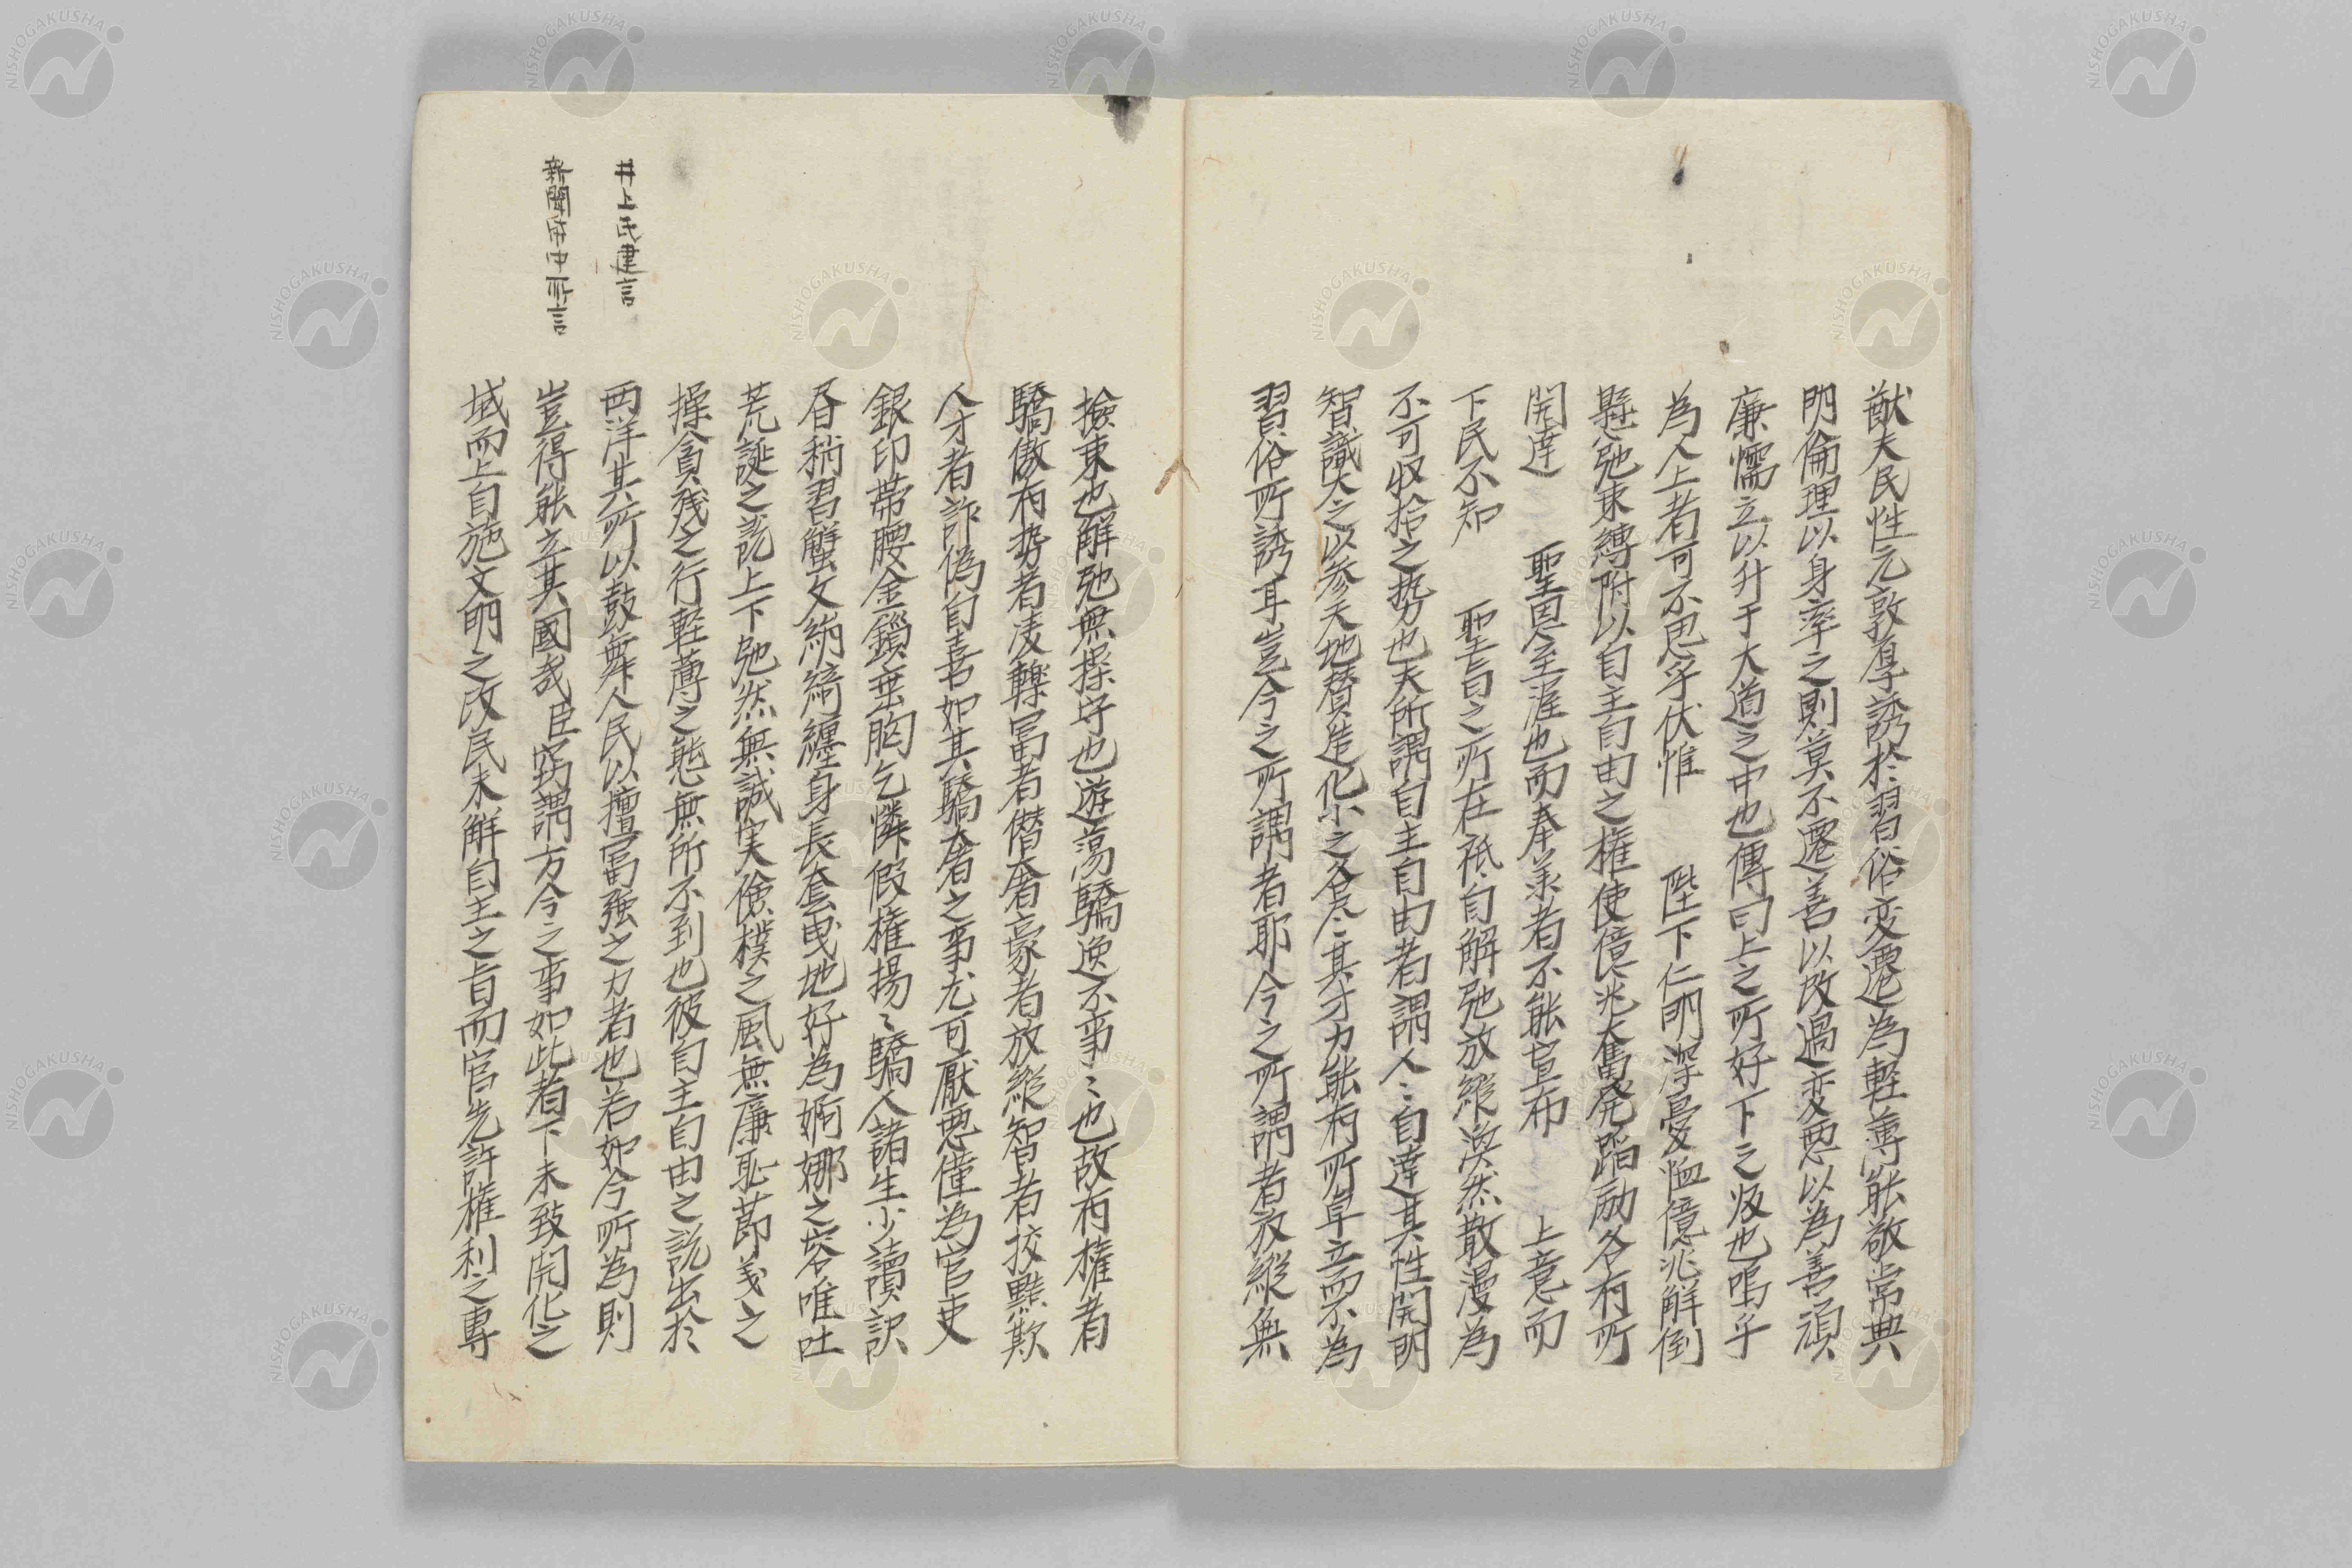 猷夫民性元敦厚誘於習俗変遷為軽薄能敬常典
明倫理以身率之則莫不遷善以改過変悪以為善頑
廉懦立以升于大道之中也傳曰上之所好下之岌也嗚乎
為人上者可不思乎伏惟　陛下仁明深憂恤億兆解倒
懸弛束縛附以自主自由之権使億兆大奮発蹈励各有所
開達　聖恩至渥也而奉承者不能宣布　上意而
下民不知　聖旨之所在祇自解弛放縦渙然散漫為
不可収拾之勢也夫所謂自主自由者謂人〻自達其性開明
智識大之以参天地賛造化小之各尽其才力能有所卓立而不為
習俗所誘耳豈今之所謂者耶今之所謂者放縦無
撿束也解弛無操守也遊蕩驕逸不事〻也故有権者
驕傲有勢者凌轢冨者僭奢豪者放縦智者狡黠欺
人才者詐偽自喜如其驕奢之事尤可厭悪僅為官吏
銀印帯腰金鎖垂胸乞憐假権揚〻驕人諸生少讀訳
書稍習蟹文絹綺纏身長套曳地好為婀娜之容唯吐
荒誕之説上下弛然無誠実倹樸之風無廉恥節義之
操貪残之行軽薄之態無所不到也彼自主自由之説出於
西洋其所以鼓舞人民以擅冨強之力者也若如今所為則
豈得能立其國哉臣窃謂方今之事如此者下未致開化之
域而上自施文明之改民未解自主之旨而官先許権利之專
井上氏建言
新聞府中所言